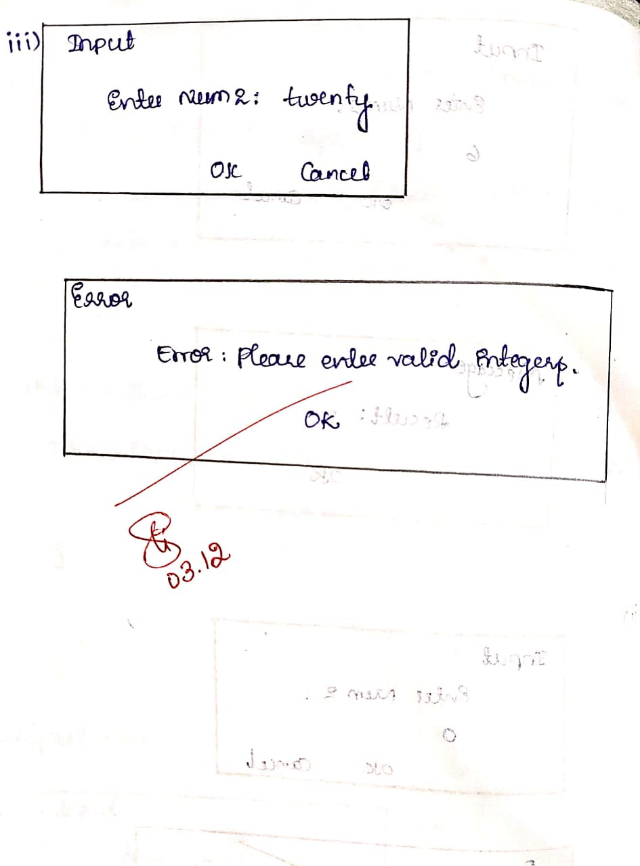 iii) Input
Enter num 2: twenty
OK Cancel
Error
Error: Please enter valid integers.
OK
03.12